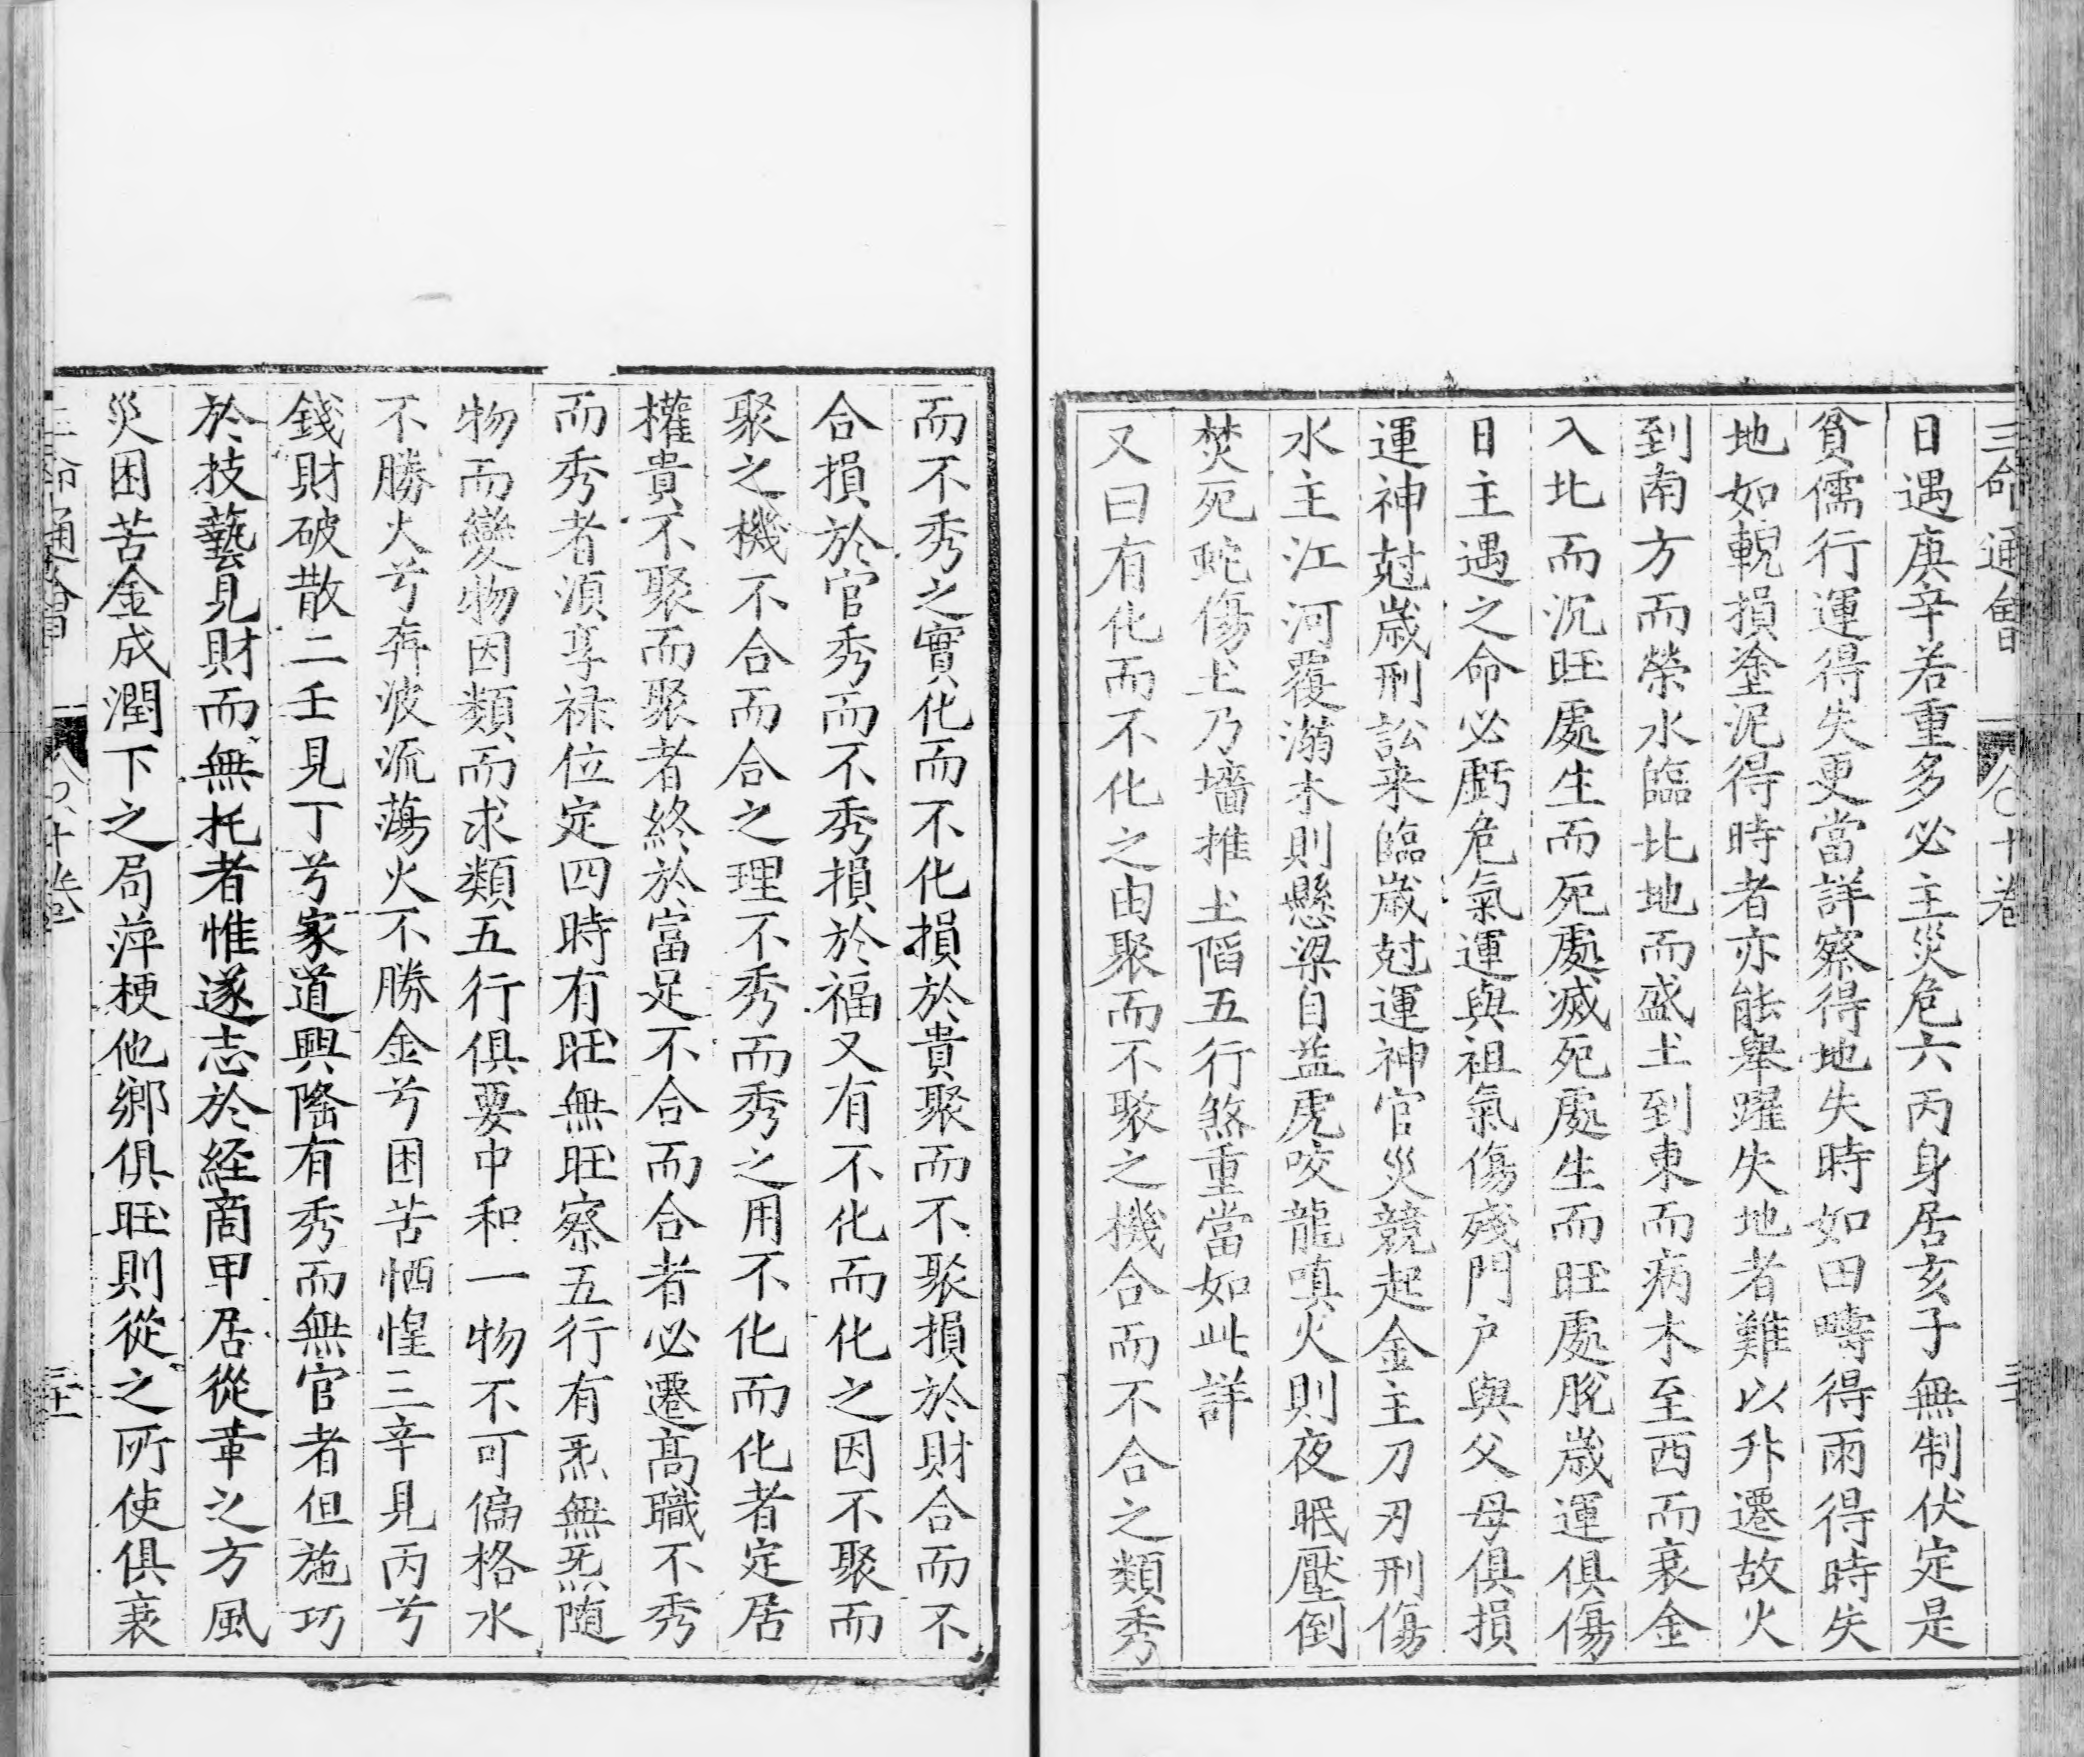 三命通會 十卷 三十
日遇庚辛若重多必主災危六丙身居亥子無制伏定是
貧儒行運得失更當詳察得地失時如田疇得雨得時失
地如輗損塗泥得時者亦能舉躍失地者難以升遷故火
到南方而榮水臨北地而盛土到東而病木至西而衰金
入北而沉旺處生而死處滅死處生而旺處脫歲運俱傷
日主遇之命必虧危氣運與祖氣傷殘門戶與父母俱損
運神尅歲刑訟来臨歲尅運神官災競起金主刀刃刑傷
水主江河覆溺木則懸梁自益虎咬龍嗔火則夜眠壓倒
焚死蛇傷土乃墻推土陷五行煞重當如此詳
又曰有化而不化之由聚而不聚之機合而不合之類秀
而不秀之實化而不化損於貴聚而不聚損於財合而不
合損於官秀而不秀損於福又有不化而化之因不聚而
聚之機不合而合之理不秀而秀之用不化而化者定居
權貴不聚而聚者終於富足不合而合者必遷高職不秀
而秀者湏享禄位定四時有旺無旺察五行有炁無炁随
物而變物因類而求類五行俱要中和一物不可偏格水
不勝火兮奔波流蕩火不勝金兮困苦恓惶三辛見丙兮
錢財破散二壬見丁兮家道興隆有秀而無官者但施巧
於技藝見財而無托者惟遂志於経商甲居從革之方風
災困苦金成潤下之局萍梗他鄉俱旺則從之所使俱衰
三命通會 十卷 三十一